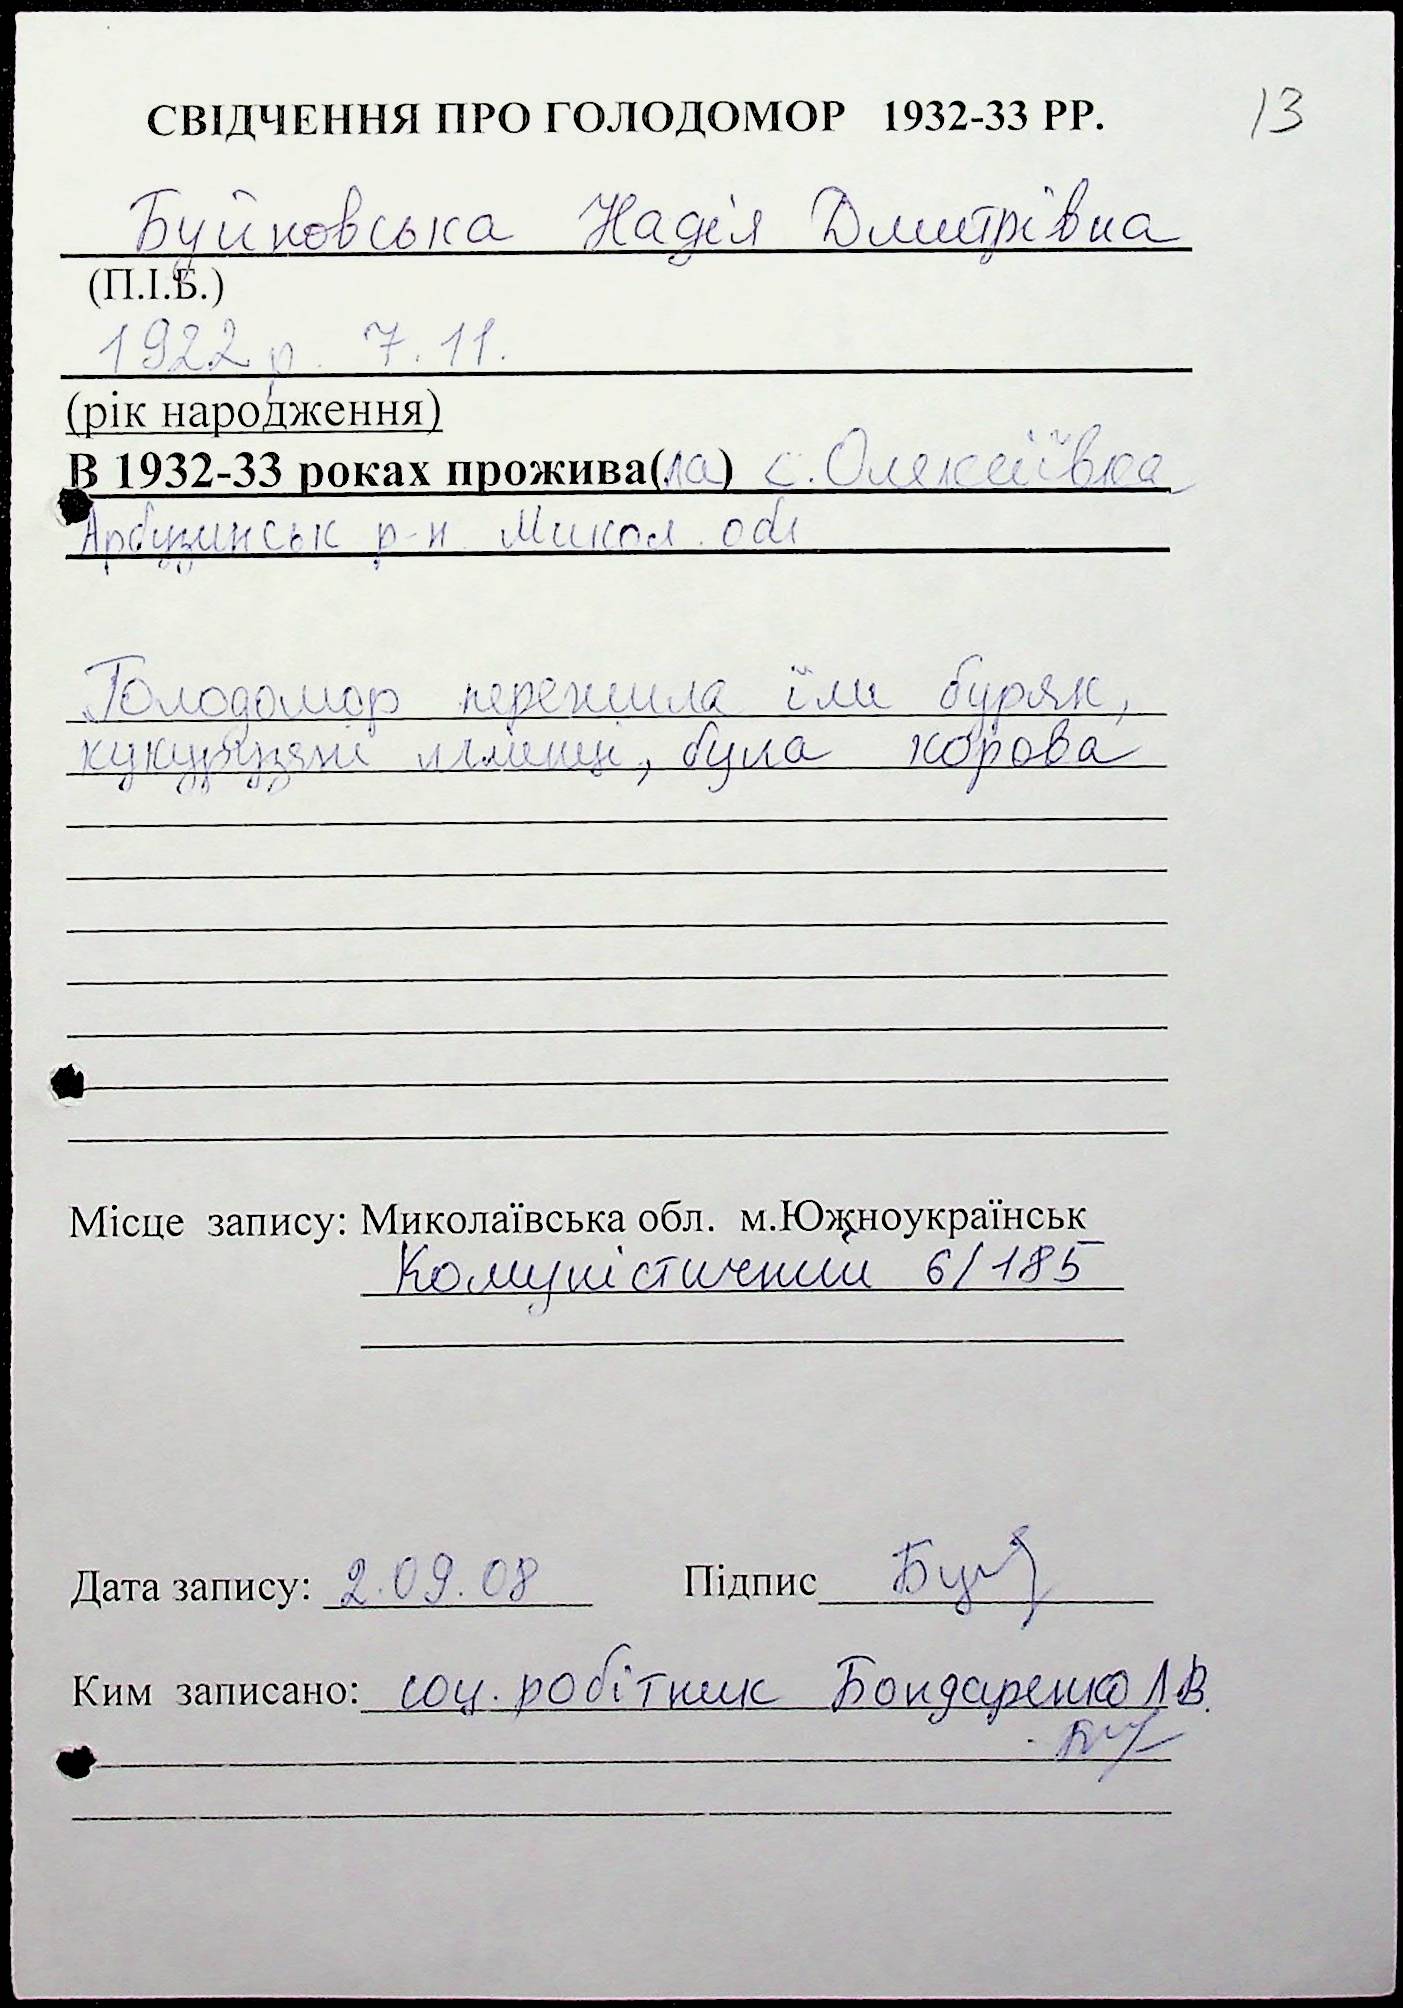 СВІДЧЕННЯ ПРО ГОЛОДОМОР 1932-33 РР.
13
Буйновська Надія Дмитрівна
(П.І.Б.)
1922 р. 7.11.
(рік народження)
В 1932-33 роках прожива(ла) с. Олексіївка
Арбузинськ р-н Микол. обл
Голодомор пережила їли буряк,
кукурузяні млинці, була корова
Місце запису: Миколаївська обл. м.Южноукраїнськ
Комуністичний 6/185
Дата запису: 2.09.08 Підпис
Ким записано: соц. робітник Бондаренко Л.В.